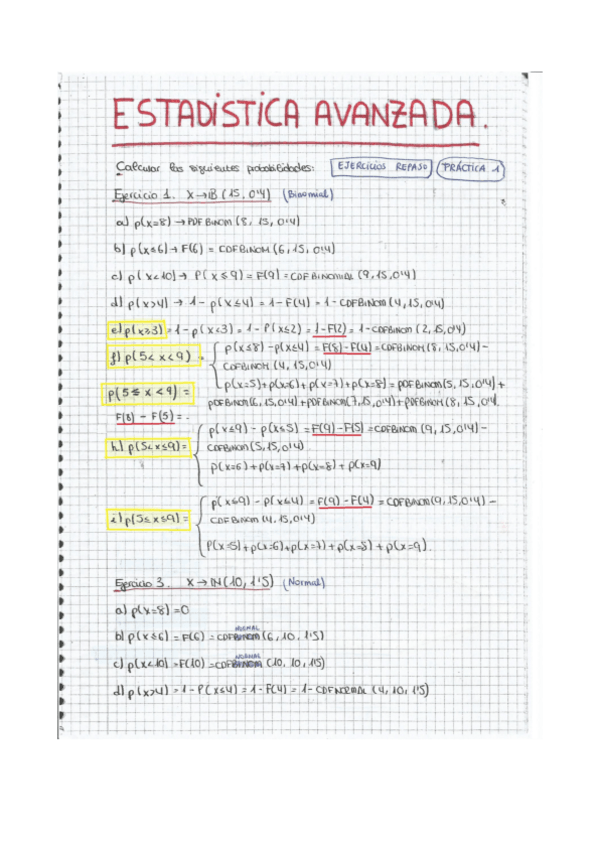 ESTADÍSTICA AVANZADA.
Calcular las siguientes probabilidades: EJERCICIOS REPASO PRÁCTICA 1
Ejercicio 1. X→B(15, 0'4) (Binomial)
a) p(x=8) → PDFBINOM (8, 15, 0'4)
b) p(x≤6) → F(6) = CDFBINOM (6, 15, 0'4)
c) p(x<10) → P(x≤9) = F(9) = CDFBINOMIAL (9, 15, 0'4)
d) p(x>4) → 1 - p(x≤4) = 1 - F(4) = 1 - CDFBINOM (4, 15, 0'4)
e) p(x≥3) = 1 - p(x<3) = 1 - P(x≤2) = 1-F(2) = 1 - CDFBINOM (2, 15, 0'4)
f) p(5<x<9) = p(x≤8) - p(x≤4) = F(8) - F(4) = CDFBINOM (8, 15, 0'4) -
CDFBINOM (4, 15, 0'4)
p(x=5) + p(x=6) + p(x=7) + p(x=8) = PDFBINOM (5, 15, 0'4) +
p(5≤x<9) = PDFBINOM (6, 15, 0'4) + PDFBINOM (7, 15, 0'4) + PDFBINOM (8, 15, 0'4).
F(8) - F(5) = .
h) p(5<x≤9) = p(x≤9) - p(x≤5) = F(9) - F(5) = CDFBINOM (9, 15, 0'4) -
CDFBINOM (5, 15, 0'4)
p(x=6) + p(x=7) + p(x=8) + p(x=9)
i) p(5≤x≤9) = p(x≤9) - p(x≤4) = F(9) - F(4) = CDFBINOM (9, 15, 0'4) -
CDFBINOM (4, 15, 0'4)
P(x=5) + p(x=6) + p(x=7) + p(x=8) + p(x=9).
Ejercicio 3. X→N(10, 1'5) (Normal)
a) p(x=8) = 0
NORMAL
b) p(x≤6) = F(6) = CDFBINOM (6, 10, 1'5)
NORMAL
c) p(x<10) = F(10) = CDFBINOM (10, 10, 1'5)
d) p(x>4) = 1 - P(x≤4) = 1 - F(4) = 1 - CDFNORMAL (4, 10, 1'5)